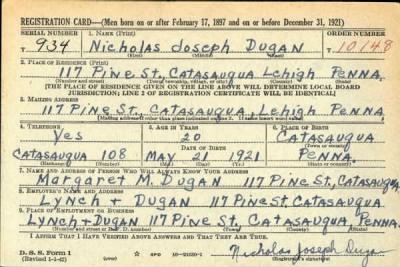 REGISTRATION CARD—(Men born on or after February 17, 1897 and on or before December 31, 1921)
SERIAL NUMBER 1. NAME (Print) ORDER NUMBER
T 934 Nicholas Joseph Dugan T 10148
(First) (Middle) (Last)
2. PLACE OF RESIDENCE (Print)
117 Pine St., Catasauqua Lehigh Penna.
(Number and street) (Town, township, village, or city) (County) (State)
[THE PLACE OF RESIDENCE GIVEN ON THE LINE ABOVE WILL DETERMINE LOCAL BOARD
JURISDICTION; LINE 2 OF REGISTRATION CERTIFICATE WILL BE IDENTICAL]
3. MAILING ADDRESS
117 Pine St., Catasauqua, Lehigh Penna.
4. TELEPHONE 5. AGE IN YEARS 6. PLACE OF BIRTH
Yes 20 Catasauqua
DATE OF BIRTH (Town or county)
Catasauqua 108 May 21 1921 Penna.
(Mo.) (Day) (Yr.)
7. NAME AND ADDRESS OF PERSON WHO WILL ALWAYS KNOW YOUR ADDRESS
Margaret M. Dugan 117 Pine St., Catasauqua,
8. EMPLOYER'S NAME AND ADDRESS
Lynch + Dugan 117 Pine St. Catasauqua
9. PLACE OF EMPLOYMENT OR BUSINESS
Lynch + Dugan 117 Pine St. Catasauqua, Penna.
(Number and street or R. F. D. number) (Town) (County) (State)
I AFFIRM THAT I HAVE VERIFIED ABOVE ANSWERS AND THAT THEY ARE TRUE.
D. S. S. Form 1 GPO 16-21630-1 Nicholas Joseph Duga
(Revised 1-1-42)